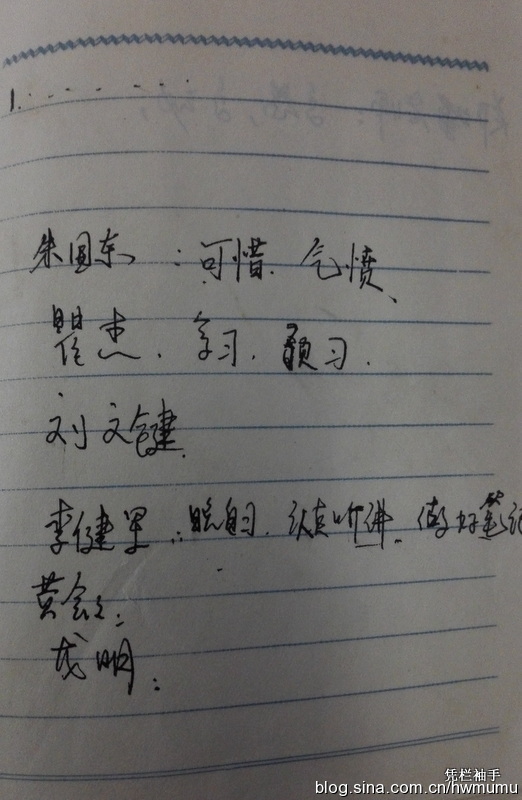 1. . . . . . .
朱国东：可惜. 气愤、
杰. 学习. 预习.
刘文健.
李健军：晚自习. 认真听讲. 做好笔记
黄会文：
戈明：
凭栏袖手
blog.sina.com.cn/hwmumu